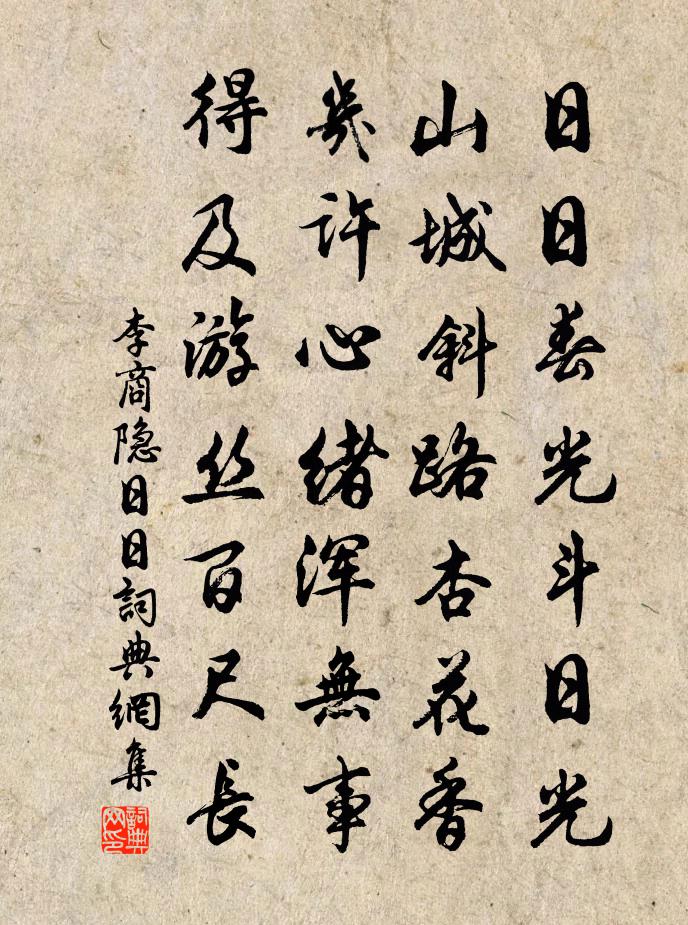 日日春光斗日光
山城斜路杏花香
幾许心绪浑無事
得及游丝百尺長
李商隐日日詞典網集
詞典网印